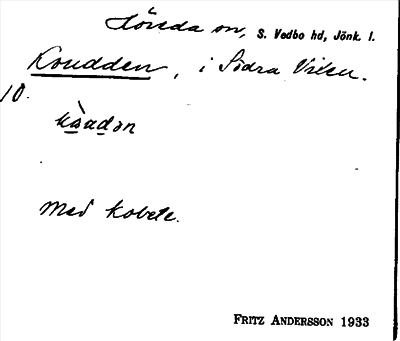 Höreda sn, S. Vedbo hd, Jönk. l.
Koudden, i Södra Vixen.
10.
Med kobete.
FRITZ ANDERSSON 1933